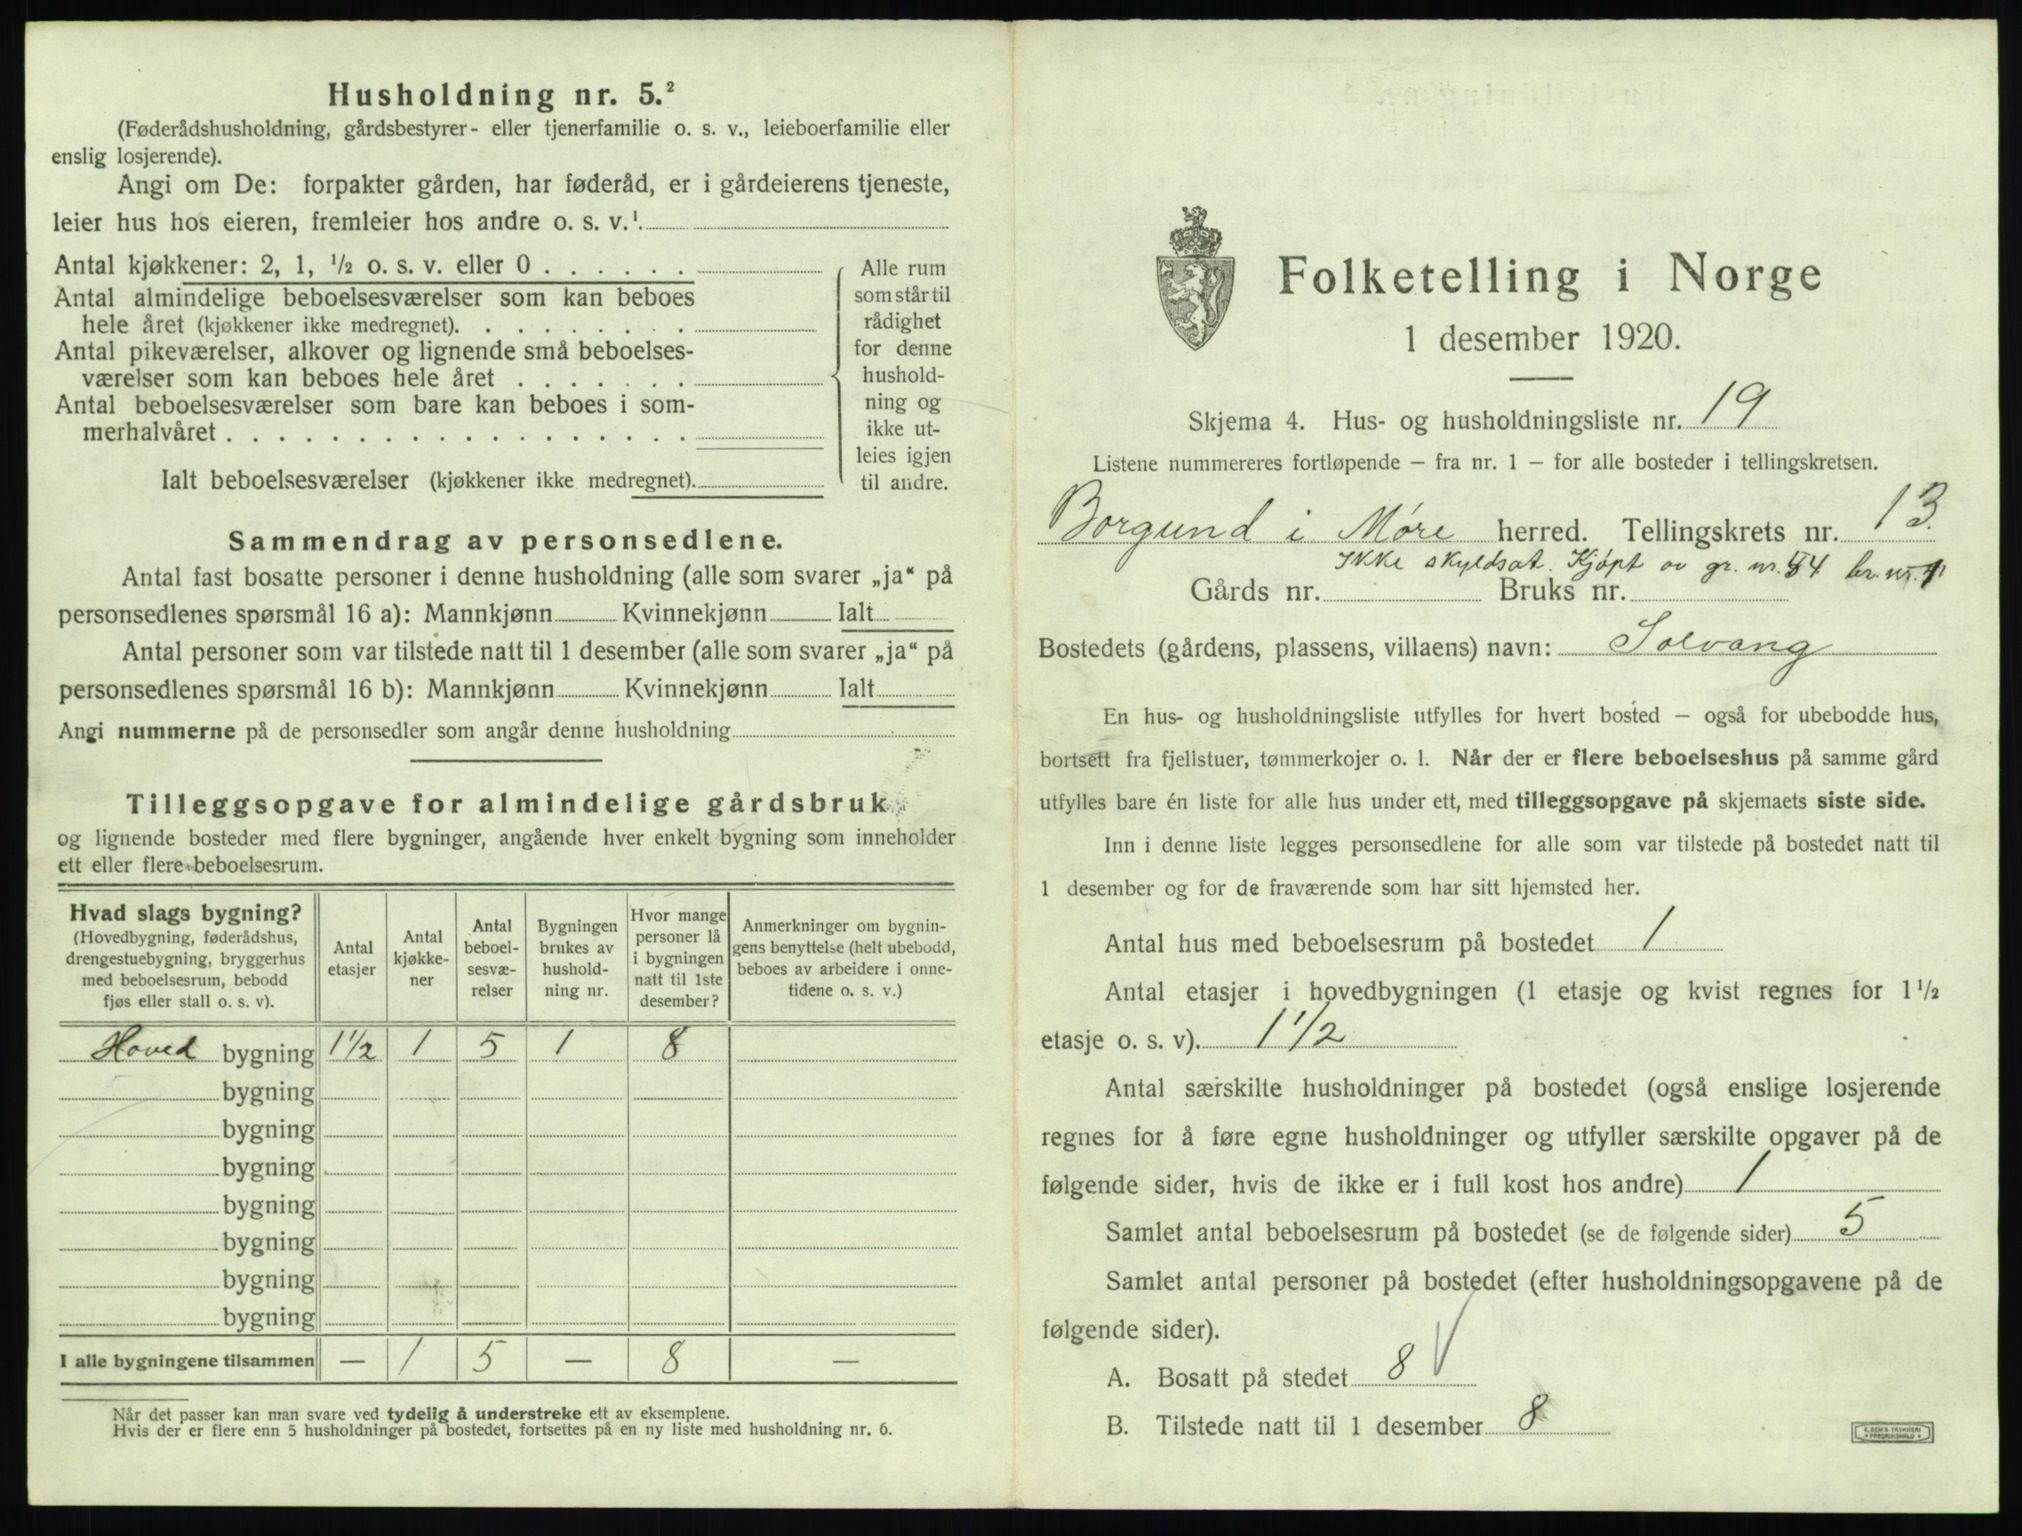 Husholdning nr. 5.²
(Føderådshusholdning, gårdsbestyrer- eller tjenerfamilie o. s. v., leieboerfamilie eller
enslig losjerende).
Angi om De: forpakter gården, har føderåd, er i gårdeierens tjeneste,
leier hus hos eieren, fremleier hos andre o. s. v.¹
Antal kjøkkener: 2, 1, ½ o. s. v. eller 0 . . . . . .
Antal almindelige beboelsesværelser som kan beboes
hele året (kjøkkener ikke medregnet). . . . . . . . .
Antal pikeværelser, alkover og lignende små beboelses-
værelser som kan beboes hele året . . . . . . .
Antal beboelsesværelser som bare kan beboes i som-
merhalvåret . . . . . . . . . . . . . . . . . .
Ialt beboelsesværelser (kjøkkener ikke medregnet).
Alle rum
som står til
rådighet
for denne
hushold-
ning og
ikke ut-
leies igjen
til andre.
Sammendrag av personsedlene.
Antal fast bosatte personer i denne husholdning (alle som svarer „ja“ på
personsedlenes spørsmål 16 a): Mannkjønn Kvinnekjønn Ialt
Antal personer som var tilstede natt til 1 desember (alle som svarer „ja“ på
personsedlenes spørsmål 16 b): Mannkjønn Kvinnekjønn Ialt
Angi nummerne på de personsedler som angår denne husholdning
Tilleggsopgave for almindelige gårdsbruk
og lignende bosteder med flere bygninger, angående hver enkelt bygning som inneholder
ett eller flere beboelsesrum.
Hvad slags bygning?
(Hovedbygning, føderådshus,
drengestuebygning, bryggerhus
med beboelsesrum, bebodd
fjøs eller stall o. s. v).
Antal
etasjer
Antal
kjøkke-
ner
Antal
beboel-
sesvæ-
relser
Bygningen
brukes av
hushold-
ning nr.
Hvor mange
personer lå
i bygningen
natt til 1ste
desember?
Anmerkninger om bygnin-
gens benyttelse (helt ubebodd,
beboes av arbeidere i onne-
tidene o. s. v.)
Hoved bygning 1½ 1 5 1 8
bygning
bygning
bygning
bygning
bygning
bygning
bygning
I alle bygningene tilsammen — 1 5 — 8 —
Når det passer kan man svare ved tydelig å understreke ett av eksemplene.
Hvis der er flere enn 5 husholdninger på bostedet, fortsettes på en ny liste med husholdning nr. 6.
Folketelling i Norge
1 desember 1920.
Skjema 4. Hus- og husholdningsliste nr. 19
Listene nummereres fortløpende – fra nr. 1 – for alle bosteder i tellingskretsen.
Borgund i Møre herred. Tellingskrets nr. 13.
Ikke skyldsat. Kjøpt av gr. nr. 54 br. nr. 1
Gårds nr. Bruks nr.
Bostedets (gårdens, plassens, villaens) navn: Solvang
En hus- og husholdningsliste utfylles for hvert bosted – også for ubebodde hus,
bortsett fra fjellstuer, tømmerkojer o. l. Når der er flere beboelseshus på samme gård
utfylles bare én liste for alle hus under ett, med tilleggsopgave på skjemaets siste side.
Inn i denne liste legges personsedlene for alle som var tilstede på bostedet natt til
1 desember og for de fraværende som har sitt hjemsted her.
Antal hus med beboelsesrum på bostedet 1
Antal etasjer i hovedbygningen (1 etasje og kvist regnes for 1½
etasje o. s. v). 1½
Antal særskilte husholdninger på bostedet (også enslige losjerende
regnes for å føre egne husholdninger og utfyller særskilte opgaver på de
følgende sider, hvis de ikke er i full kost hos andre) 1
Samlet antal beboelsesrum på bostedet (se de følgende sider) 5
Samlet antal personer på bostedet (efter husholdningsopgavene på de
følgende sider).
A. Bosatt på stedet 8
B. Tilstede natt til 1 desember 8